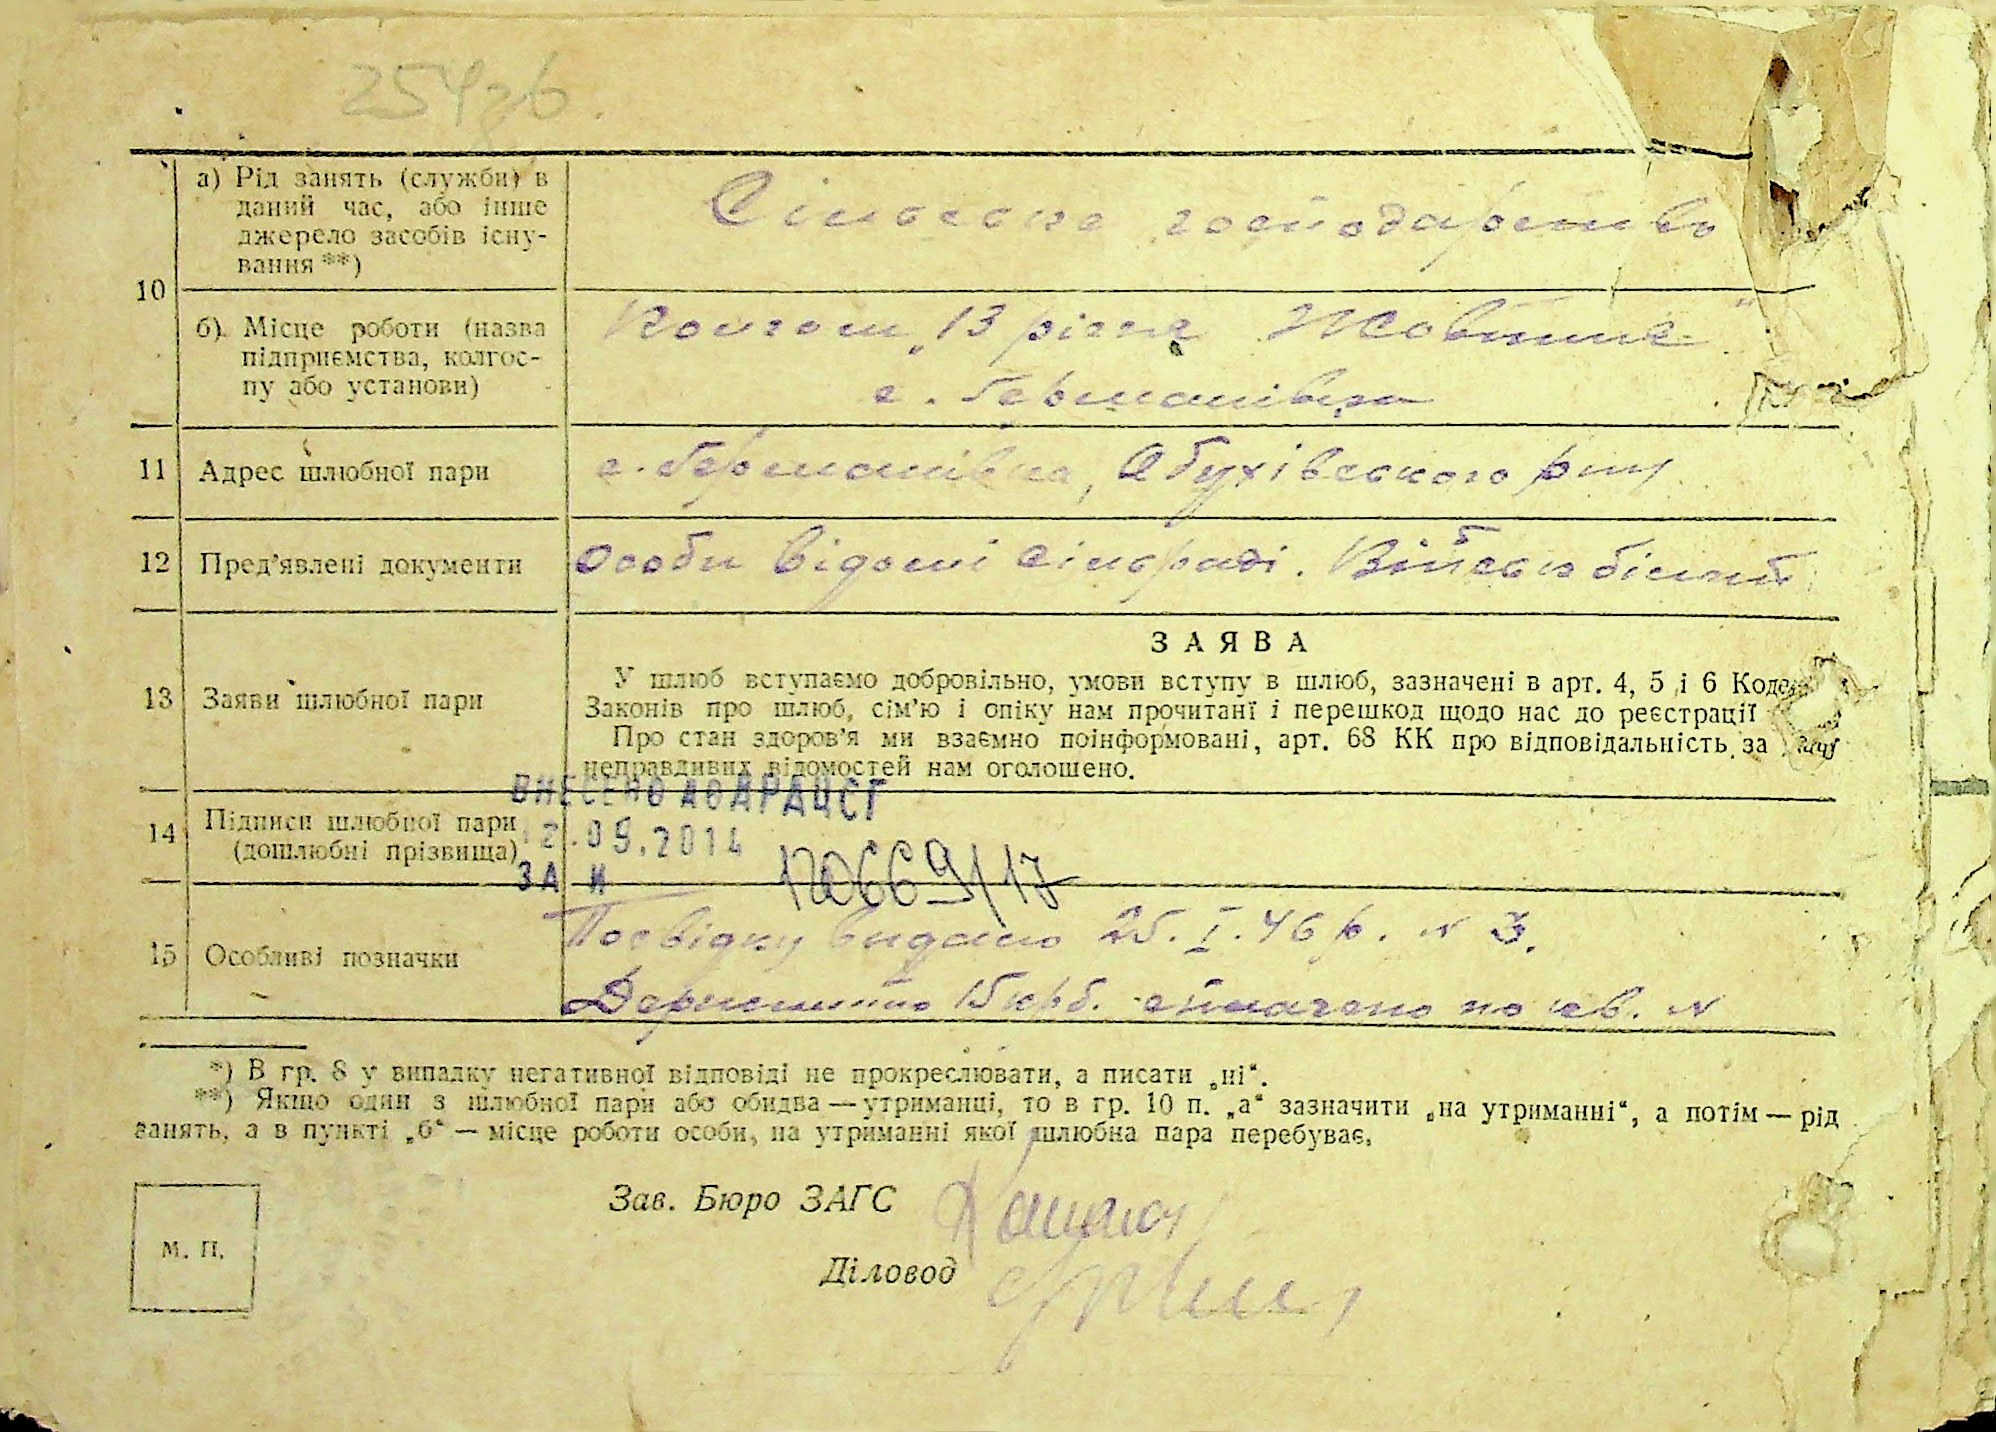 254зв
а) Рід занять (служби) в
даний час, або інше
джерело засобів існу-
вання **)
Сільське господарство
10
б) Місце роботи (назва
підприємства, колгос-
пу або установи)
Колгосп „13 річчя Жовтня"
с. Германівка
11 Адрес шлюбної пари
с. Германівка, Обухівського р-ну
12 Пред’явлені документи
Особи відомі сільраді. Військ білет
13 Заяви шлюбної пари
ЗАЯВА
У шлюб вступаємо добровільно, умови вступу в шлюб, зазначені в арт. 4, 5 і 6
Законів про шлюб, сім’ю і опіку нам прочитані і перешкод щодо нас до реєстрації
Про стан здоров’я ми взаємно поінформовані, арт. 68 КК про відповідальність за
неправдивих відомостей нам оголошено.
ВНЕСЕНО ДО ДРАЦСГ
14 Підписи шлюбної пари
(дошлюбні прізвища)
2.09.2014
ЗА №
15 Особливі позначки
Посвідку видано 25.I.46 р. № 3.
Держмито 15 крб. сплачено по кв. №
*) В гр. 8 у випадку негативної відповіді не прокреслювати, а писати „ні“.
**) Якщо один з шлюбної пари або обидва — утриманці, то в гр. 10 п. „а“ зазначити „на утриманні“, а потім — рід
занять, а в пункті „б“ — місце роботи особи, на утриманні якої шлюбна пара перебуває.
Зав. Бюро ЗАГС
Діловод
М. П.